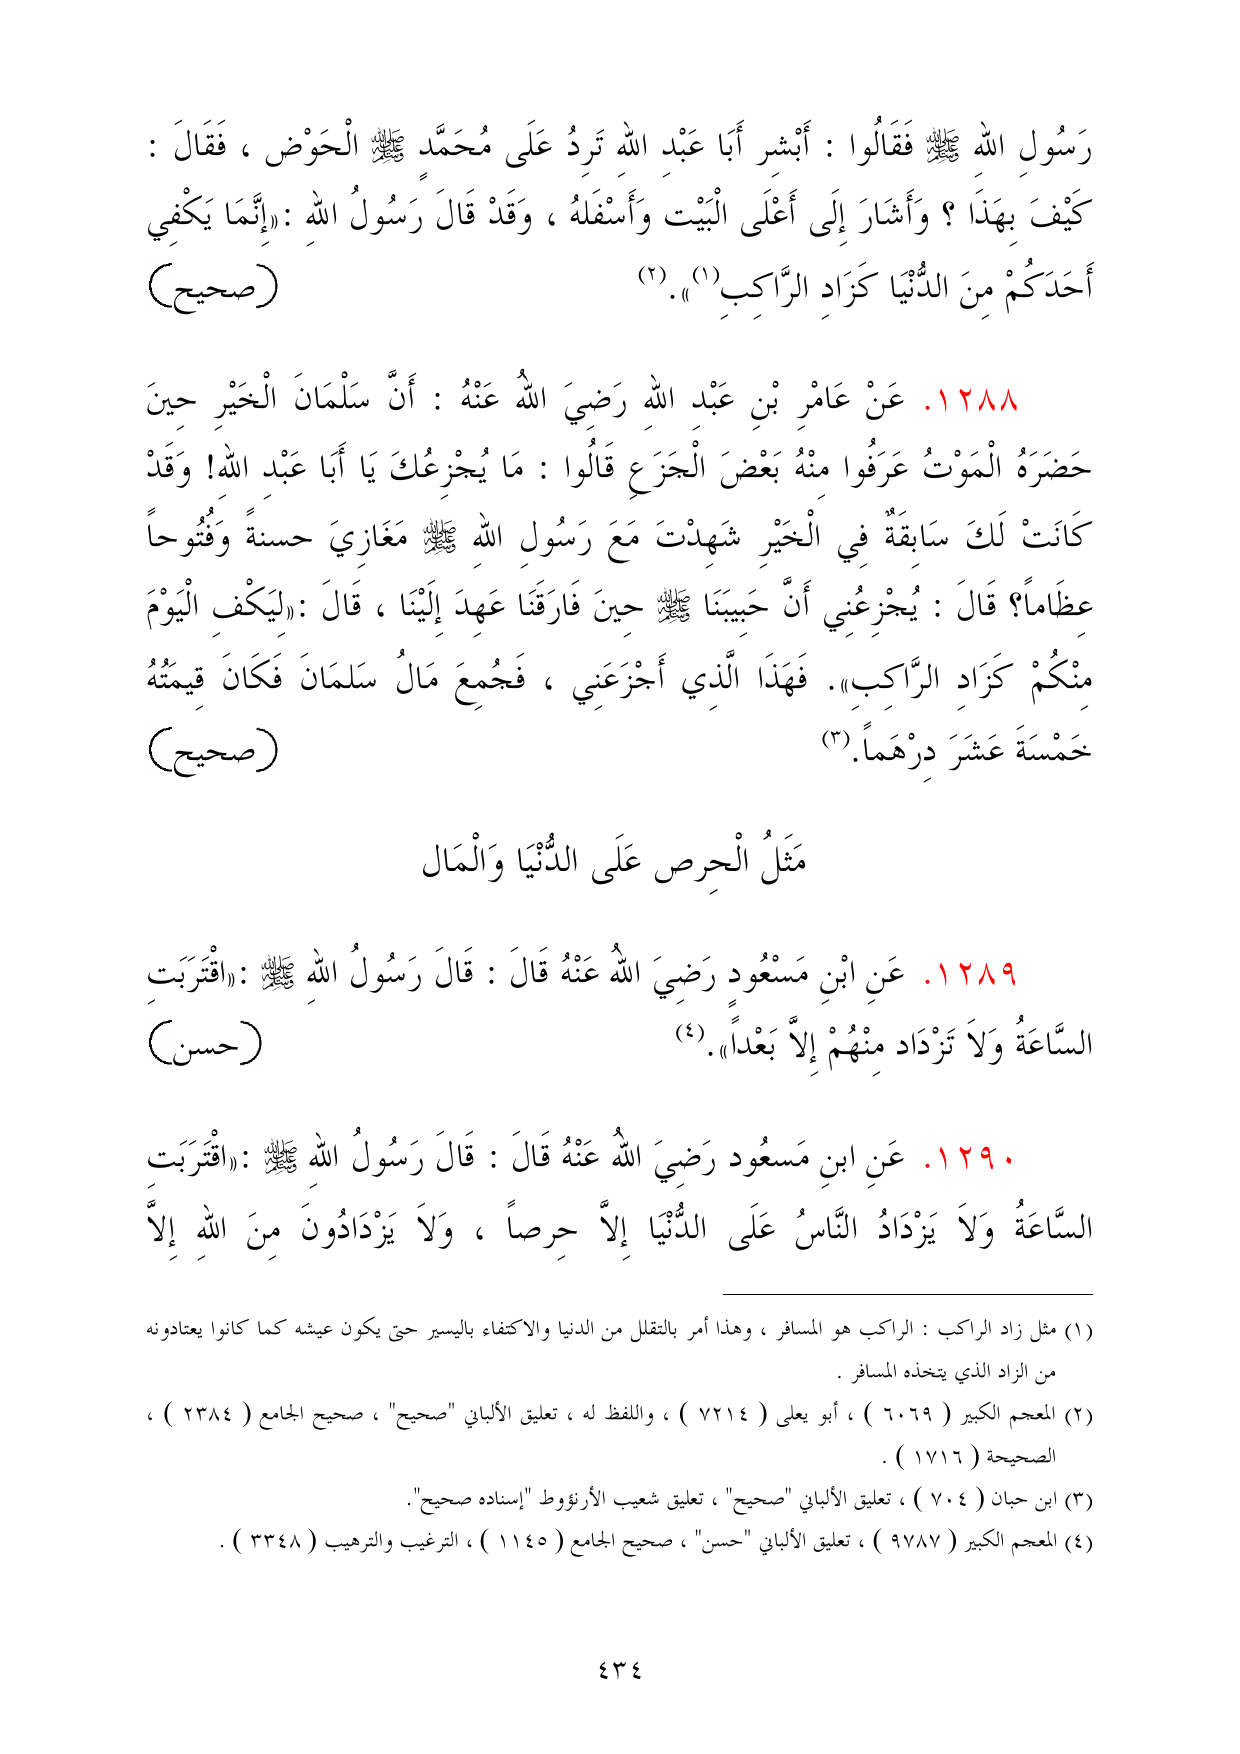 رَسُولِ اللهِ ﷺ فَقَالُوا : أَبْشِر أَبَا عَبْدِ اللهِ تَرِدُ عَلَى مُحَمَّدٍ ﷺ الْحَوْض ، فَقَالَ :
كَيْفَ بِهَذَا ؟ وَأَشَارَ إِلَى أَعْلَى الْبَيْت وَأَسْفَلهُ ، وَقَدْ قَالَ رَسُولُ اللهِ :«إِنَّمَا يَكْفِي
أَحَدَكُمْ مِنَ الدُّنْيَا كَزَادِ الرَّاكِبِ(١)».(٢) (صحيح)
١٢٨٨. عَنْ عَامْرِ بْنِ عَبْدِ اللهِ رَضِيَ اللهُ عَنْهُ : أَنَّ سَلْمَانَ الْخَيْرِ حِينَ
حَضَرَهُ الْمَوْتُ عَرَفُوا مِنْهُ بَعْضَ الْجَزَعِ قَالُوا : مَا يُجْزِعُكَ يَا أَبَا عَبْدِ اللهِ! وَقَدْ
كَانَتْ لَكَ سَابِقَةٌ فِي الْخَيْرِ شَهِدْتَ مَعَ رَسُولِ اللهِ ﷺ مَغَازِيَ حسنةً وَفُتُوحاً
عِظَاماً؟ قَالَ : يُجْزِعُنِي أَنَّ حَبِيبَنَا ﷺ حِينَ فَارَقَنَا عَهِدَ إِلَيْنَا ، قَالَ :«لِيَكْفِ الْيَوْمَ
مِنْكُمْ كَزَادِ الرَّاكِبِ». فَهَذَا الَّذِي أَجْزَعَنِي ، فَجُمِعَ مَالُ سَلمَانَ فَكَانَ قِيمَتُهُ
خَمْسَةَ عَشَرَ دِرْهَماً.(٣) (صحيح)
مَثَلُ الْحِرص عَلَى الدُّنْيَا وَالْمَال
١٢٨٩. عَنِ ابْنِ مَسْعُودٍ رَضِيَ اللهُ عَنْهُ قَالَ : قَالَ رَسُولُ اللهِ ﷺ :«اقْتَرَبَتِ
السَّاعَةُ وَلاَ تَزْدَاد مِنْهُمْ إِلاَّ بَعْداً».(٤) (حسن)
١٢٩٠. عَنِ ابنِ مَسعُود رَضِيَ اللهُ عَنْهُ قَالَ : قَالَ رَسُولُ اللهِ ﷺ :«اقْتَرَبَتِ
السَّاعَةُ وَلاَ يَزْدَادُ النَّاسُ عَلَى الدُّنْيَا إِلاَّ حِرصاً ، وَلاَ يَزْدَادُونَ مِنَ اللهِ إِلاَّ
(١) مثل زاد الراكب : الراكب هو المسافر ، وهذا أمر بالتقلل من الدنيا والاكتفاء باليسير حتى يكون عيشه كما كانوا يعتادونه
من الزاد الذي يتخذه المسافر .
(٢) المعجم الكبير ( ٦٠٦٩ ) ، أبو يعلى ( ٧٢١٤ ) ، واللفظ له ، تعليق الألباني "صحيح" ، صحيح الجامع ( ٢٣٨٤ ) ،
الصحيحة ( ١٧١٦ ) .
(٣) ابن حبان ( ٧٠٤ ) ، تعليق الألباني "صحيح" ، تعليق شعيب الأرنؤوط "إسناده صحيح".
(٤) المعجم الكبير ( ٩٧٨٧ ) ، تعليق الألباني "حسن" ، صحيح الجامع ( ١١٤٥ ) ، الترغيب والترهيب ( ٣٣٤٨ ) .
٤٣٤